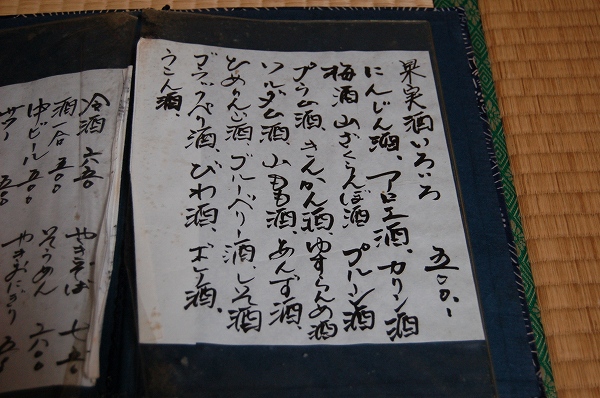 果実酒いろいろ
五〇〇
にんじん酒、アロエ酒、カリン酒
梅酒 山ざくらんぼ酒 プルーン酒
プラム酒、きんかん酒、ゆすらんめ酒
ソルダム酒、山もも酒、あんず酒、
ひめりんご酒、ブルーベリー酒、しそ酒
ブラックベリ酒、びわ酒、ボケ酒、
うこん酒、
冷酒 六五〇
酒一合 五〇〇
中ビール 五〇〇
サワー 五〇
やきそば 七五
そうめん 六〇〇
やきおにぎり 五